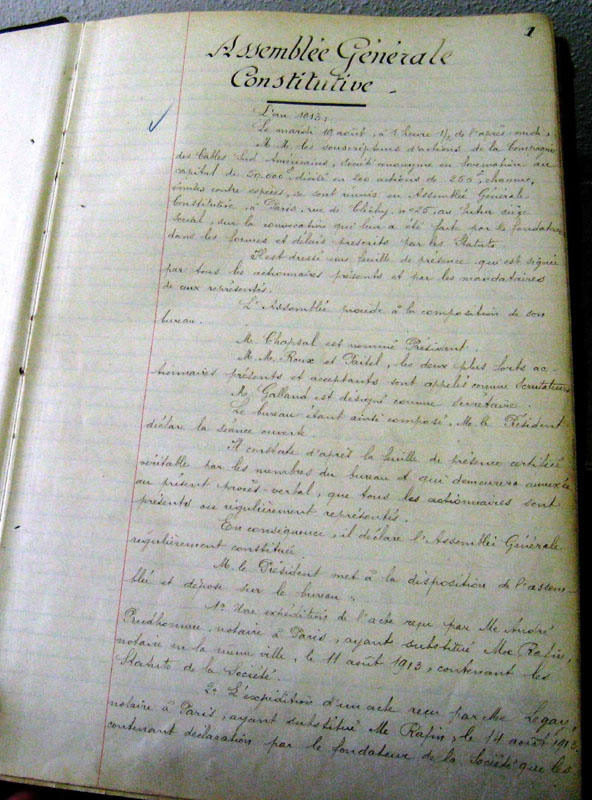 1
Assemblée Générale
Constitutive
L'an 1913,
Le mardi 19 août, à 1 heure 1/2 de l'après midi,
M.M. les souscripteurs d'actions de la Compagnie
des Cables Sud Américains, société anonyme en formation au
capital de 50.000f, divisé en 200 actions de 250f, chacune,
émises contre espèces, se sont réunis en Assemblée Générale
Constitutive, à Paris, rue de Clichy, n° 25, au futur siège
social, sur la convocation qui leur a été faite par le fondateur
dans les formes et délais prescrits par les Statuts.
Il est dressé une feuille de présence qui est signée
par tous les actionnaires présents et par les mandataires
de ceux représentés.
L'Assemblée procède à la composition de son
bureau.
M. Chapsal est nommé Président.
M.M. Roux et Paitel, les deux plus forts ac-
tionnaires présents et acceptants sont appelés comme Scrutateurs
M. Galland est désigné comme secrétaire
Le bureau étant ainsi composé, M. le Président
déclare la séance ouverte.
Il constate d'après la feuille de présence certifiée
véritable par les membres du bureau et qui demeurera annexée
au présent procès-verbal, que tous les actionnaires sont
présents ou régulièrement représentés.
En conséquence, il déclare l'Assemblée Générale
régulièrement constituée.
M. le Président met à la disposition de l'assem
blée et dépose sur le bureau :
1° Une expédition de l'acte reçu par Me André
Prudhomme, notaire à Paris, ayant substitué Me Rafin,
notaire en la même ville, le 11 août 1913, contenant les
Statuts de la Société.
2° L'expédition d'un acte reçu par Me Legay,
notaire à Paris, ayant substitué Me Rafin, le 14 août 1913,
contenant déclaration par le fondateur de la Société que les